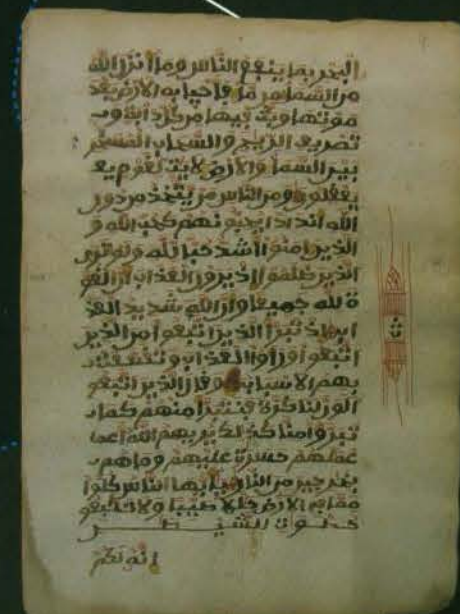 البحر بما ينفع الناس وما أنزل الله
من السما من ما فأحيا به الأرض بعد
موتها وبث فيها من كل دابة و
تصريف الريح والسحاب المسخر
بين السما والأرض لأيت لقوم يع
يعقلون ومن الناس من يتخذ من دون
الله أندادا يحبونهم كحب الله و
الذين امنوا أشد حبا لله ولو ترى
الذين ظلموا إذ يرون العذاب أن القو
ة لله جميعا وأن الله شديد العذ
اب إذ تبرأ الذين اتبعوا من الذين
اتبعوا ورأوا العذاب وتقطعت
بهم الأسباب وقال الذين اتبعو
ا لو أن لنا كرة فنتبرأ منهم كما
تبروا منا كذلك يريهم الله أعما
عملهم حسرت عليهم وما هم
بخرجين من النار يأيها الناس كلوا
مما في الأرض حللا طيبا ولا تتبعو
خطوت الشيطن
إنه لكم